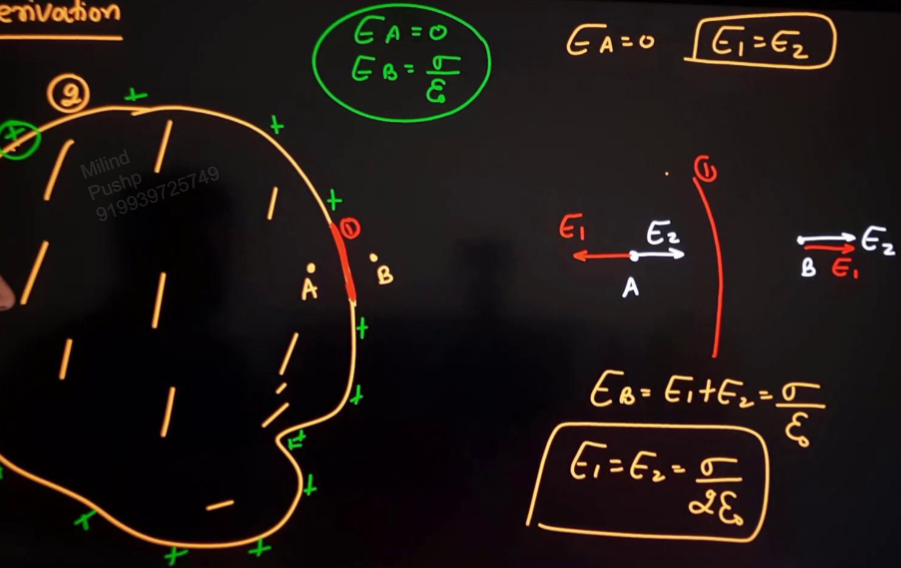 erivation
E A = 0
E B = σ/ε₀
E A = 0
E₁ = E₂
②
+
+
+
+
Milind
Pushp
919939725749
①
①
A
B
E₁
E₂
A
E₂
B
E₁
+
+
+
+
+
+
+
E B = E₁ + E₂ = σ/ε₀
E₁ = E₂ = σ/2ε₀